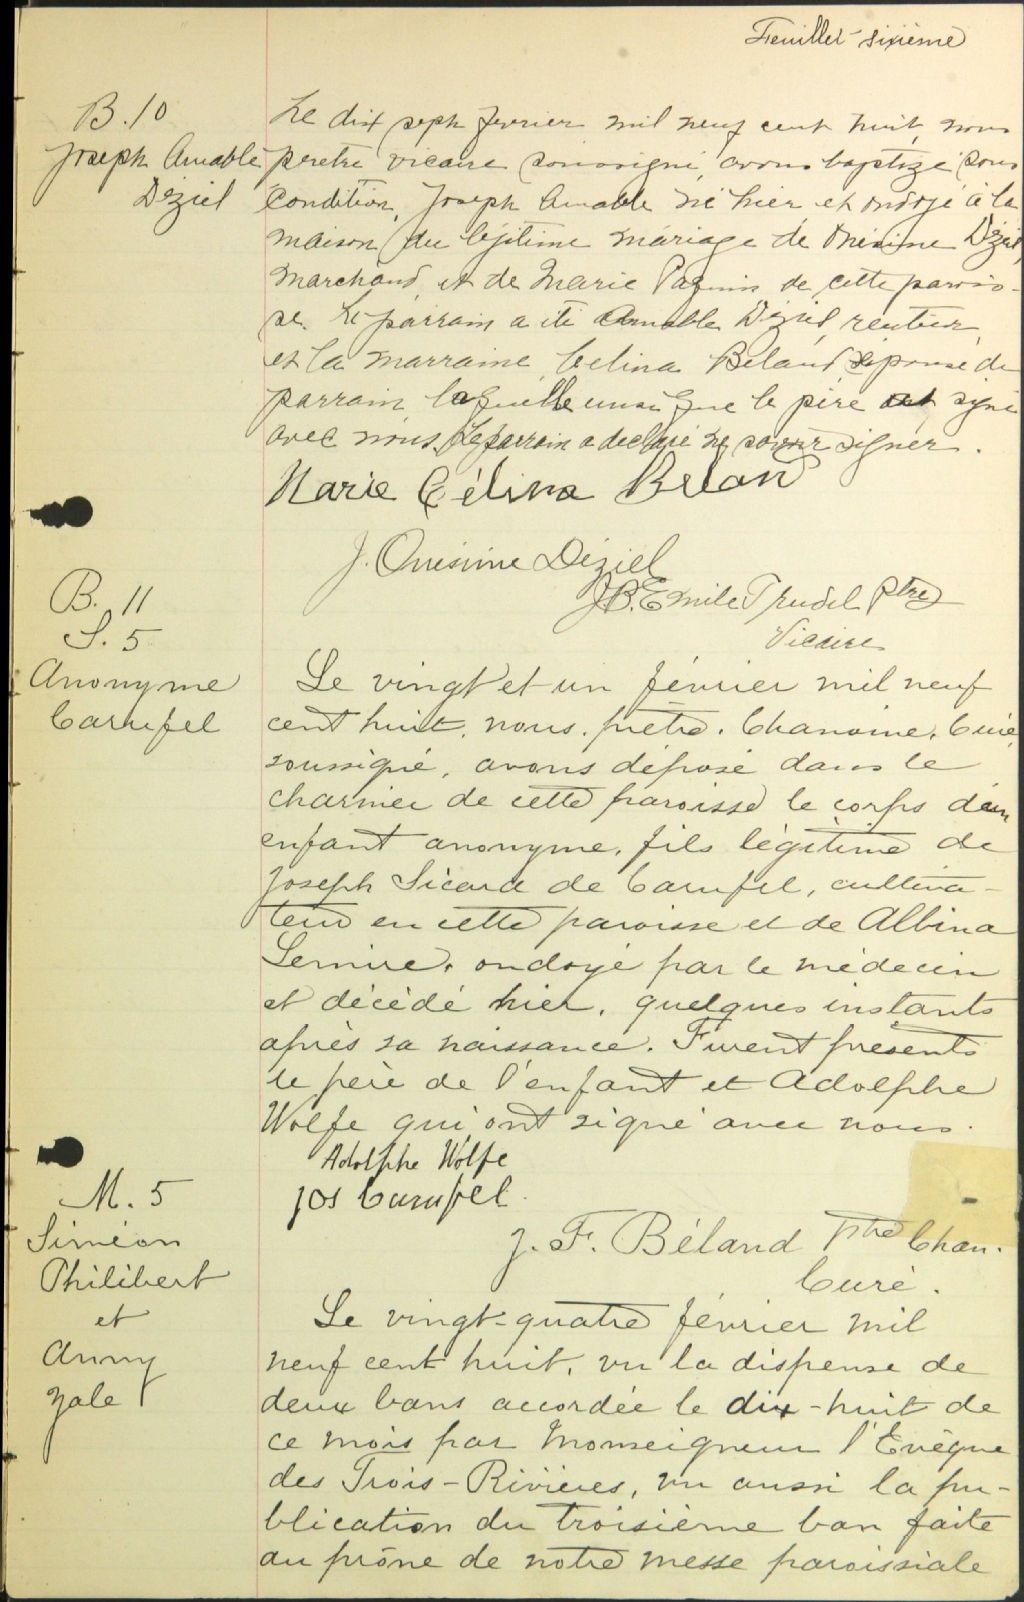 Feuillet sixième
B. 10
Joseph Amable
Déziel
Le dix sept fevrier mil neuf cent huit, nous
pretre vicaire soussigné, avons baptizé sous
condition, Joseph Amable né hier et ondoyé à la
maison du légitime mariage de Onésime Déziel,
marchand, et de Marie Paquin de cette parois-
se. Le parrain a été Amable Déziel, rentier,
et la marraine, Celina Beland épouse du
parrain, laquelle ainsi que le père ont signé
avec nous. Le parrain a declaré ne savoir signer.
Marie Célina Belan
J. Onesime Déziel
J.B. Emile Trudel Ptre
Vicaire
B. 11
S. 5
Anonyme
Carufel
Le vingt et un février mil neuf
cent huit, nous, prêtre, Chanoine, Curé,
soussigné, avons déposé dans le
charnier de cette paroisse le corps d'un
enfant anonyme, fils légitime de
Joseph Sicard de Carufel, cultiva-
teur en cette paroisse et de Albina
Lemire, ondoyé par le médecin
et décédé hier, quelques instants
après sa naissance. Furent présents
le père de l'enfant et Adolphe
Wolfe qui ont signé avec nous.
Adolphe Wolfe
Jos Carufel
J. F. Béland Ptre Chan.
Curé.
M. 5
Siméon
Philibert
et
Anny
Yale
Le vingt-quatre février mil
neuf cent huit, vu la dispense de
deux bans accordée le dix-huit de
ce mois par Monseigneur l'Evêque
des Trois-Rivières, vu aussi la pu-
blication du troisième ban faite
au prône de notre messe paroissiale